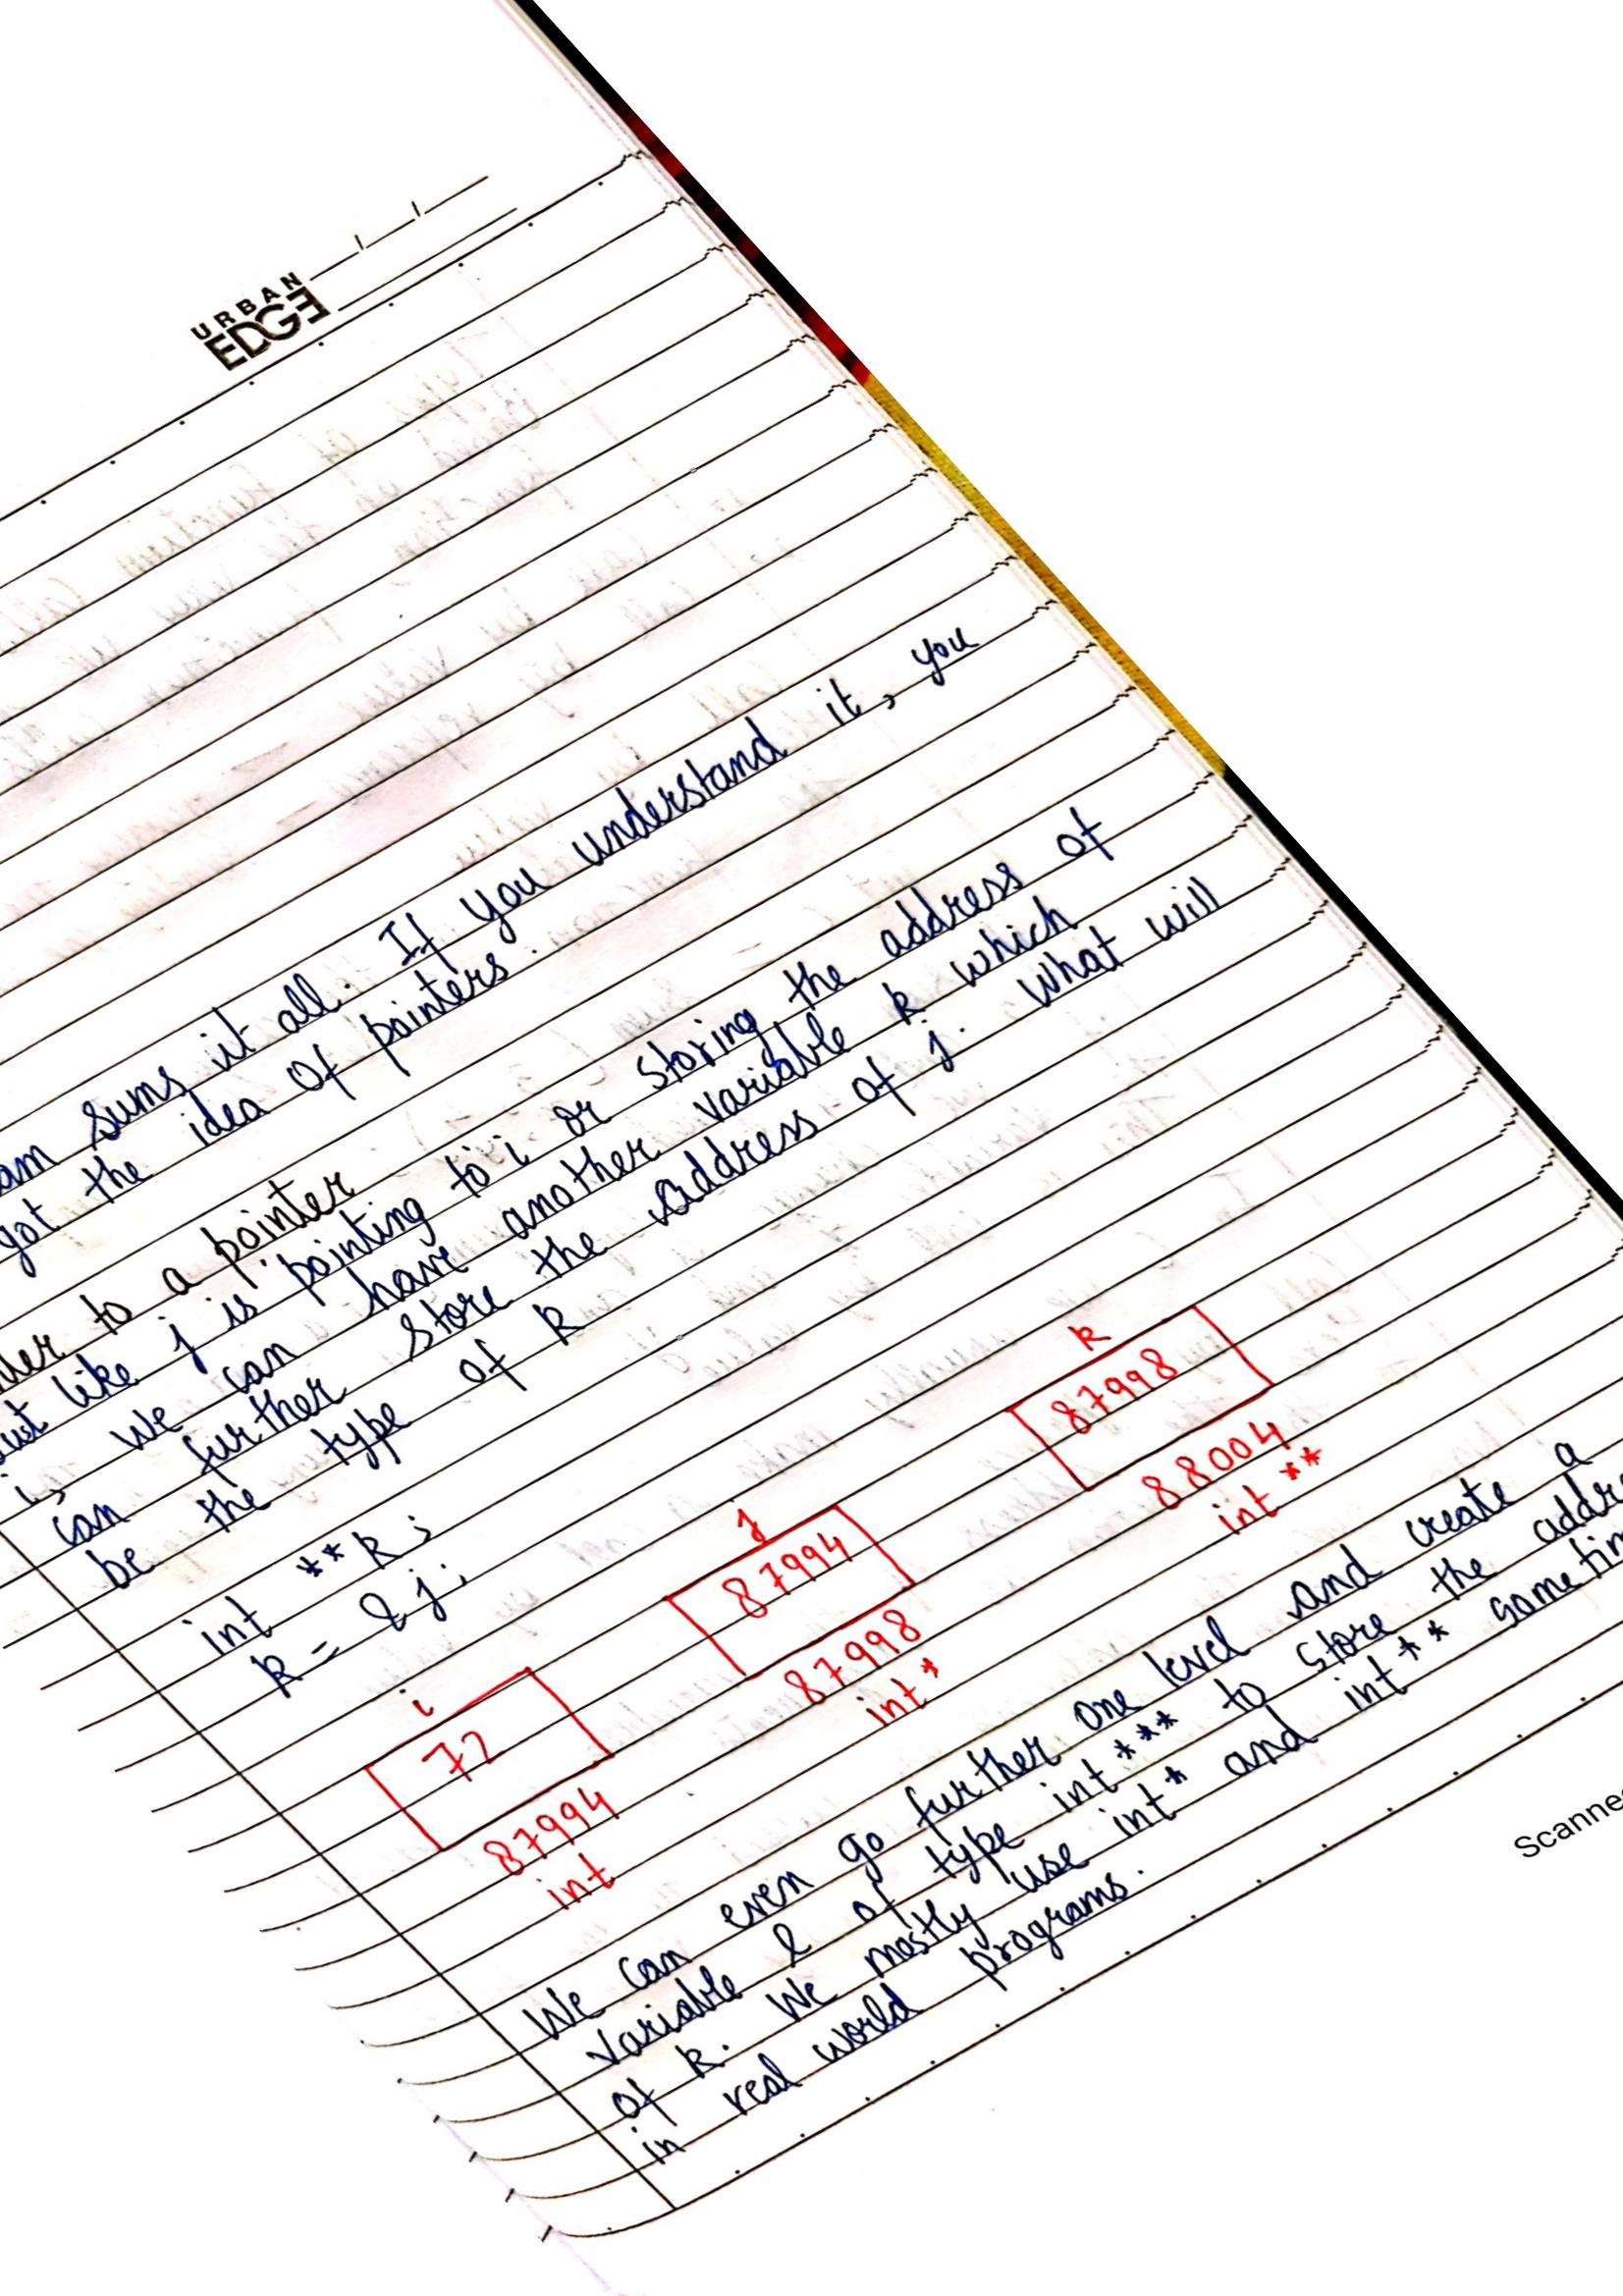 URBAN
EDGE
am sums it all. If you understand it, you
got the idea of pointers.
to a pointer
like j is pointing to i or storing the address of
i, we can have another variable k which
can further store the address of j. What will
be the type of k
int **k;
k = &j;
i j k
72 87994 87998
87994 87998 88004
int int* int**
We can even go further one level and create a
variable l of type int*** to store the
of k. We mostly use int* and int**
in real world programs.